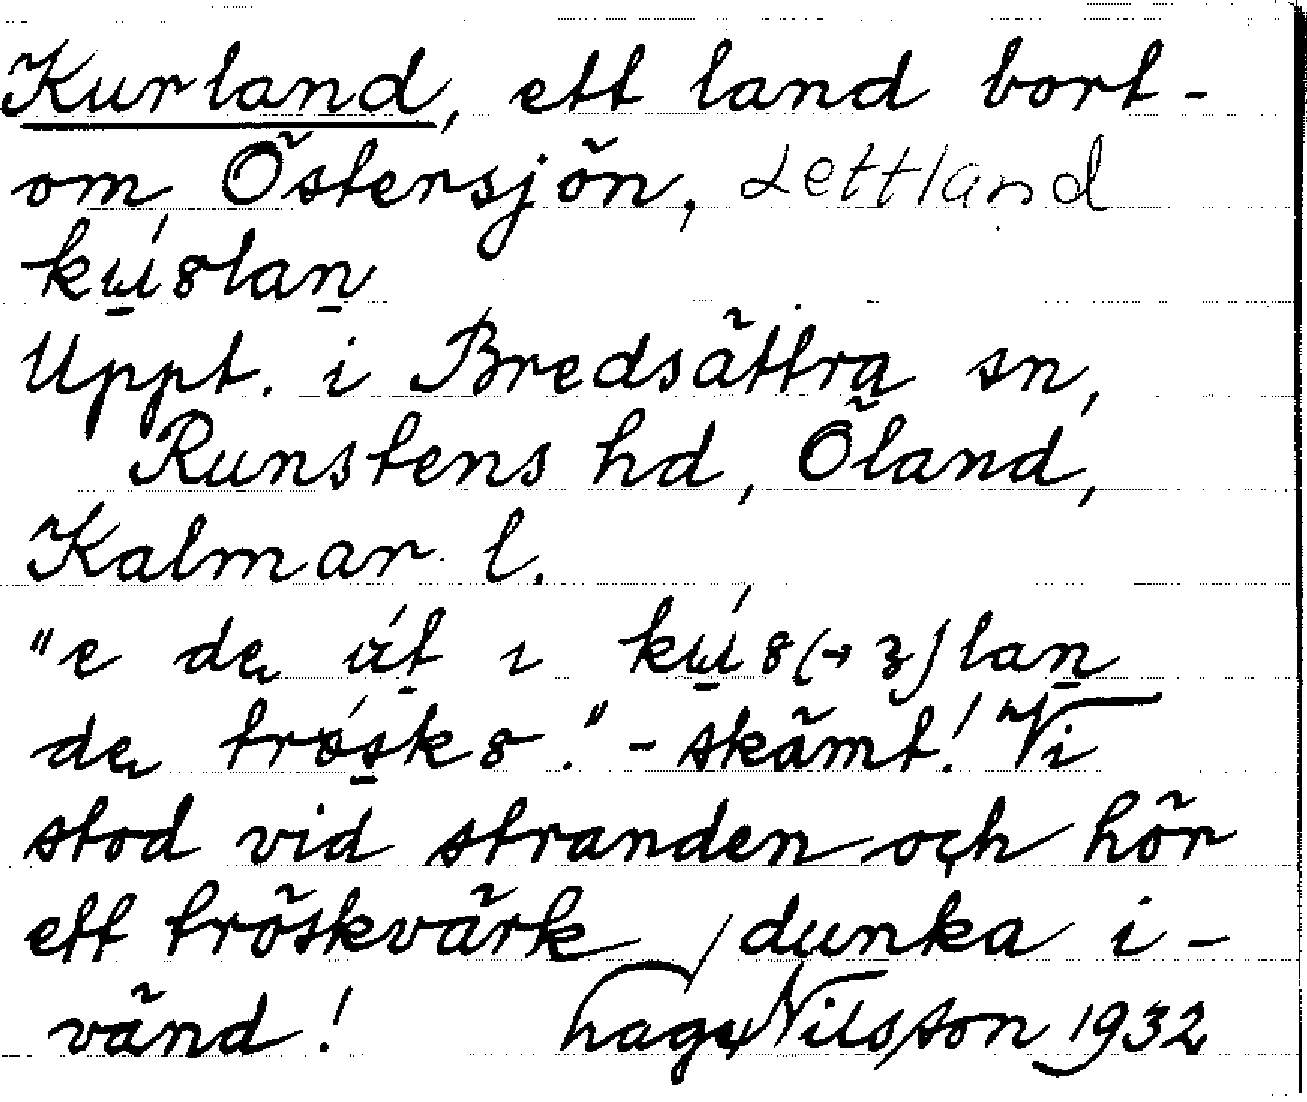 Kurland, ett land bort-
om Östersjön, Lettland
kú8lan
Uppt. i Bredsättra sn,
Runstens hd, Öland,
Kalmar l.
"e de út ı kú8(→3)lan
de trösk8." - skämt! Vi
stod vid stranden och hör
ett tröskvärk dunka i-
vänd! Nilsson 1932